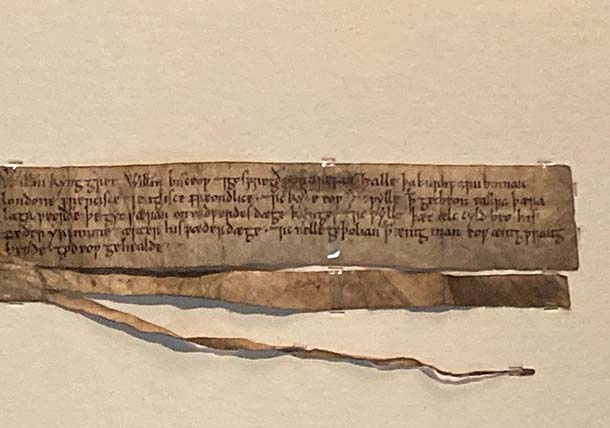 Willm kyng gret Willm bisceop ⁊ gosfregð portirefan ⁊ ealle þa burhwaru binnan
londone frencisce ⁊ englisce freondlice ⁊ ic kyðe eow þ ic wylle þ get beon eallra þæra
laga weorðe þe gyt wæran on eadwerdes dæge kynges ⁊ ic wylle þæt ælc cyld beo his
fæder yrfnume æfter his fæder dæge ⁊ ic nelle geþolian þ ænig man eow ænig wrang
beode god eow gehealde